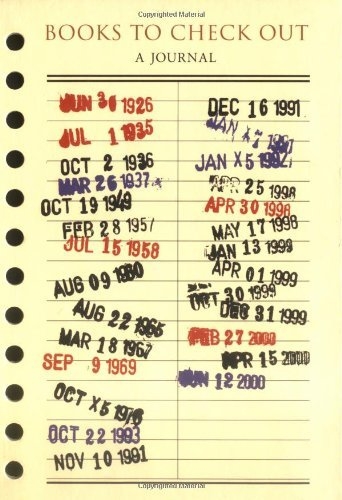 Copyrighted Material
BOOKS TO CHECK OUT
A JOURNAL
JUN 30 1926
JUL 1 1935
OCT 2 1936
MAR 26 1937
OCT 19 1949
FEB 28 1957
JUL 15 1958
AUG 09 1960
AUG 22 1965
MAR 18 1967
SEP 9 1969
OCT X5 1976
OCT 22 1993
NOV 10 1991
DEC 16 1991
JAN
JAN X5 1992
APR 25 1998
APR 30 1998
MAY 17 1998
JAN 13 1999
APR 01 1999
OCT 30 1999
DEC 31 1999
FEB 27 2000
APR 15 2000
JUN 12 2000
Copyrighted Material